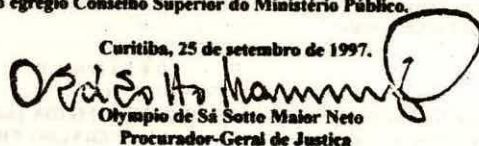 o egrégio Conselho Superior do Ministério Público.
Curitiba, 25 de setembro de 1997.
Olympio de Sá Sotto Maior Neto
Procurador-Geral de Justiça